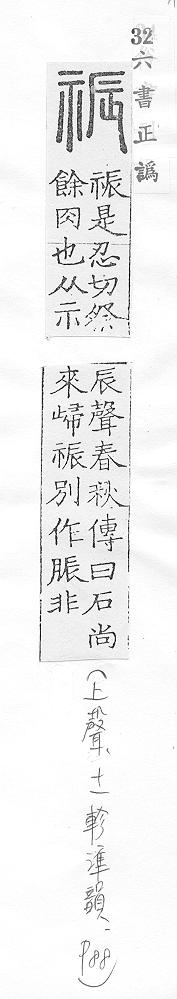 32
六書正譌
祳
祳是忍切祭
餘肉也从示
辰聲春秋傳曰石尚
來歸祳別作脤非
(上聲、十一軫準韻、P88)